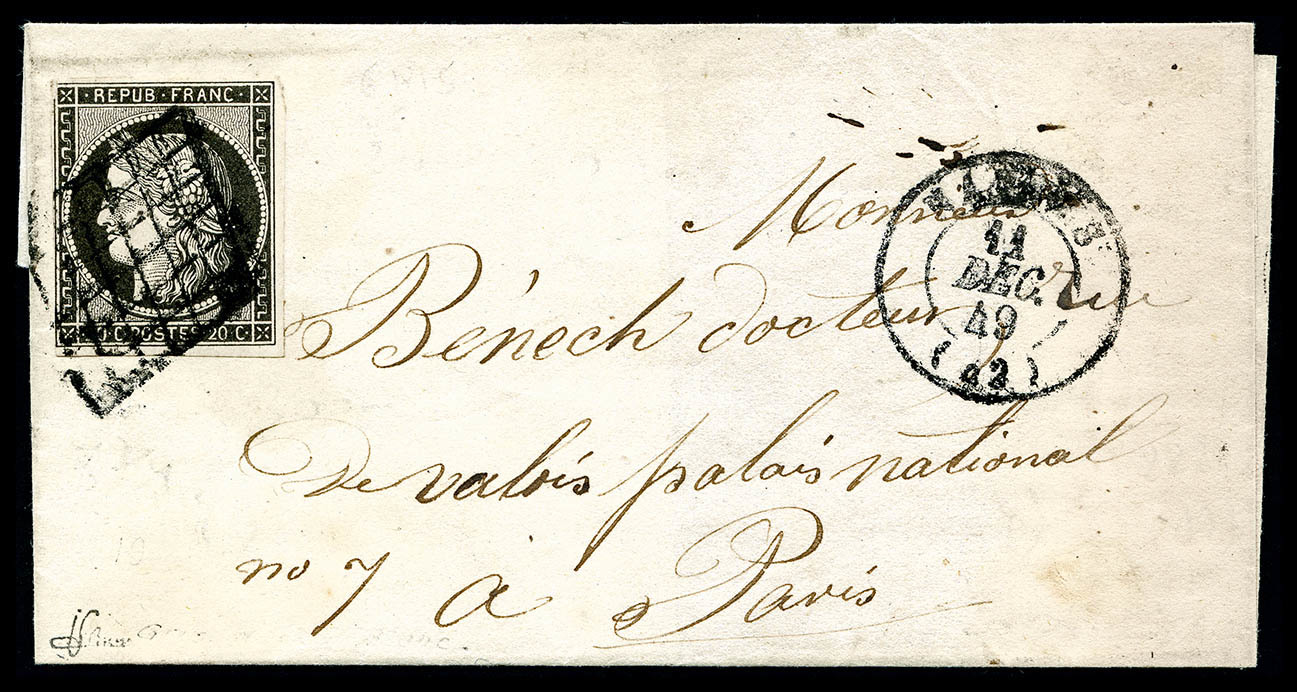 REPUB · FRANC ·
20 C · POSTES · 20 C
11
DEC.
49
Monsieur
Bénech docteur, rue
De valois palais national
no 7 à Paris